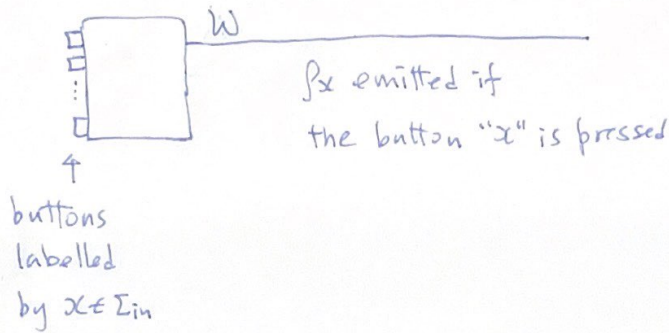 W
ρx emitted if
the button "x" is pressed
buttons
labelled
by x ∈ Σin